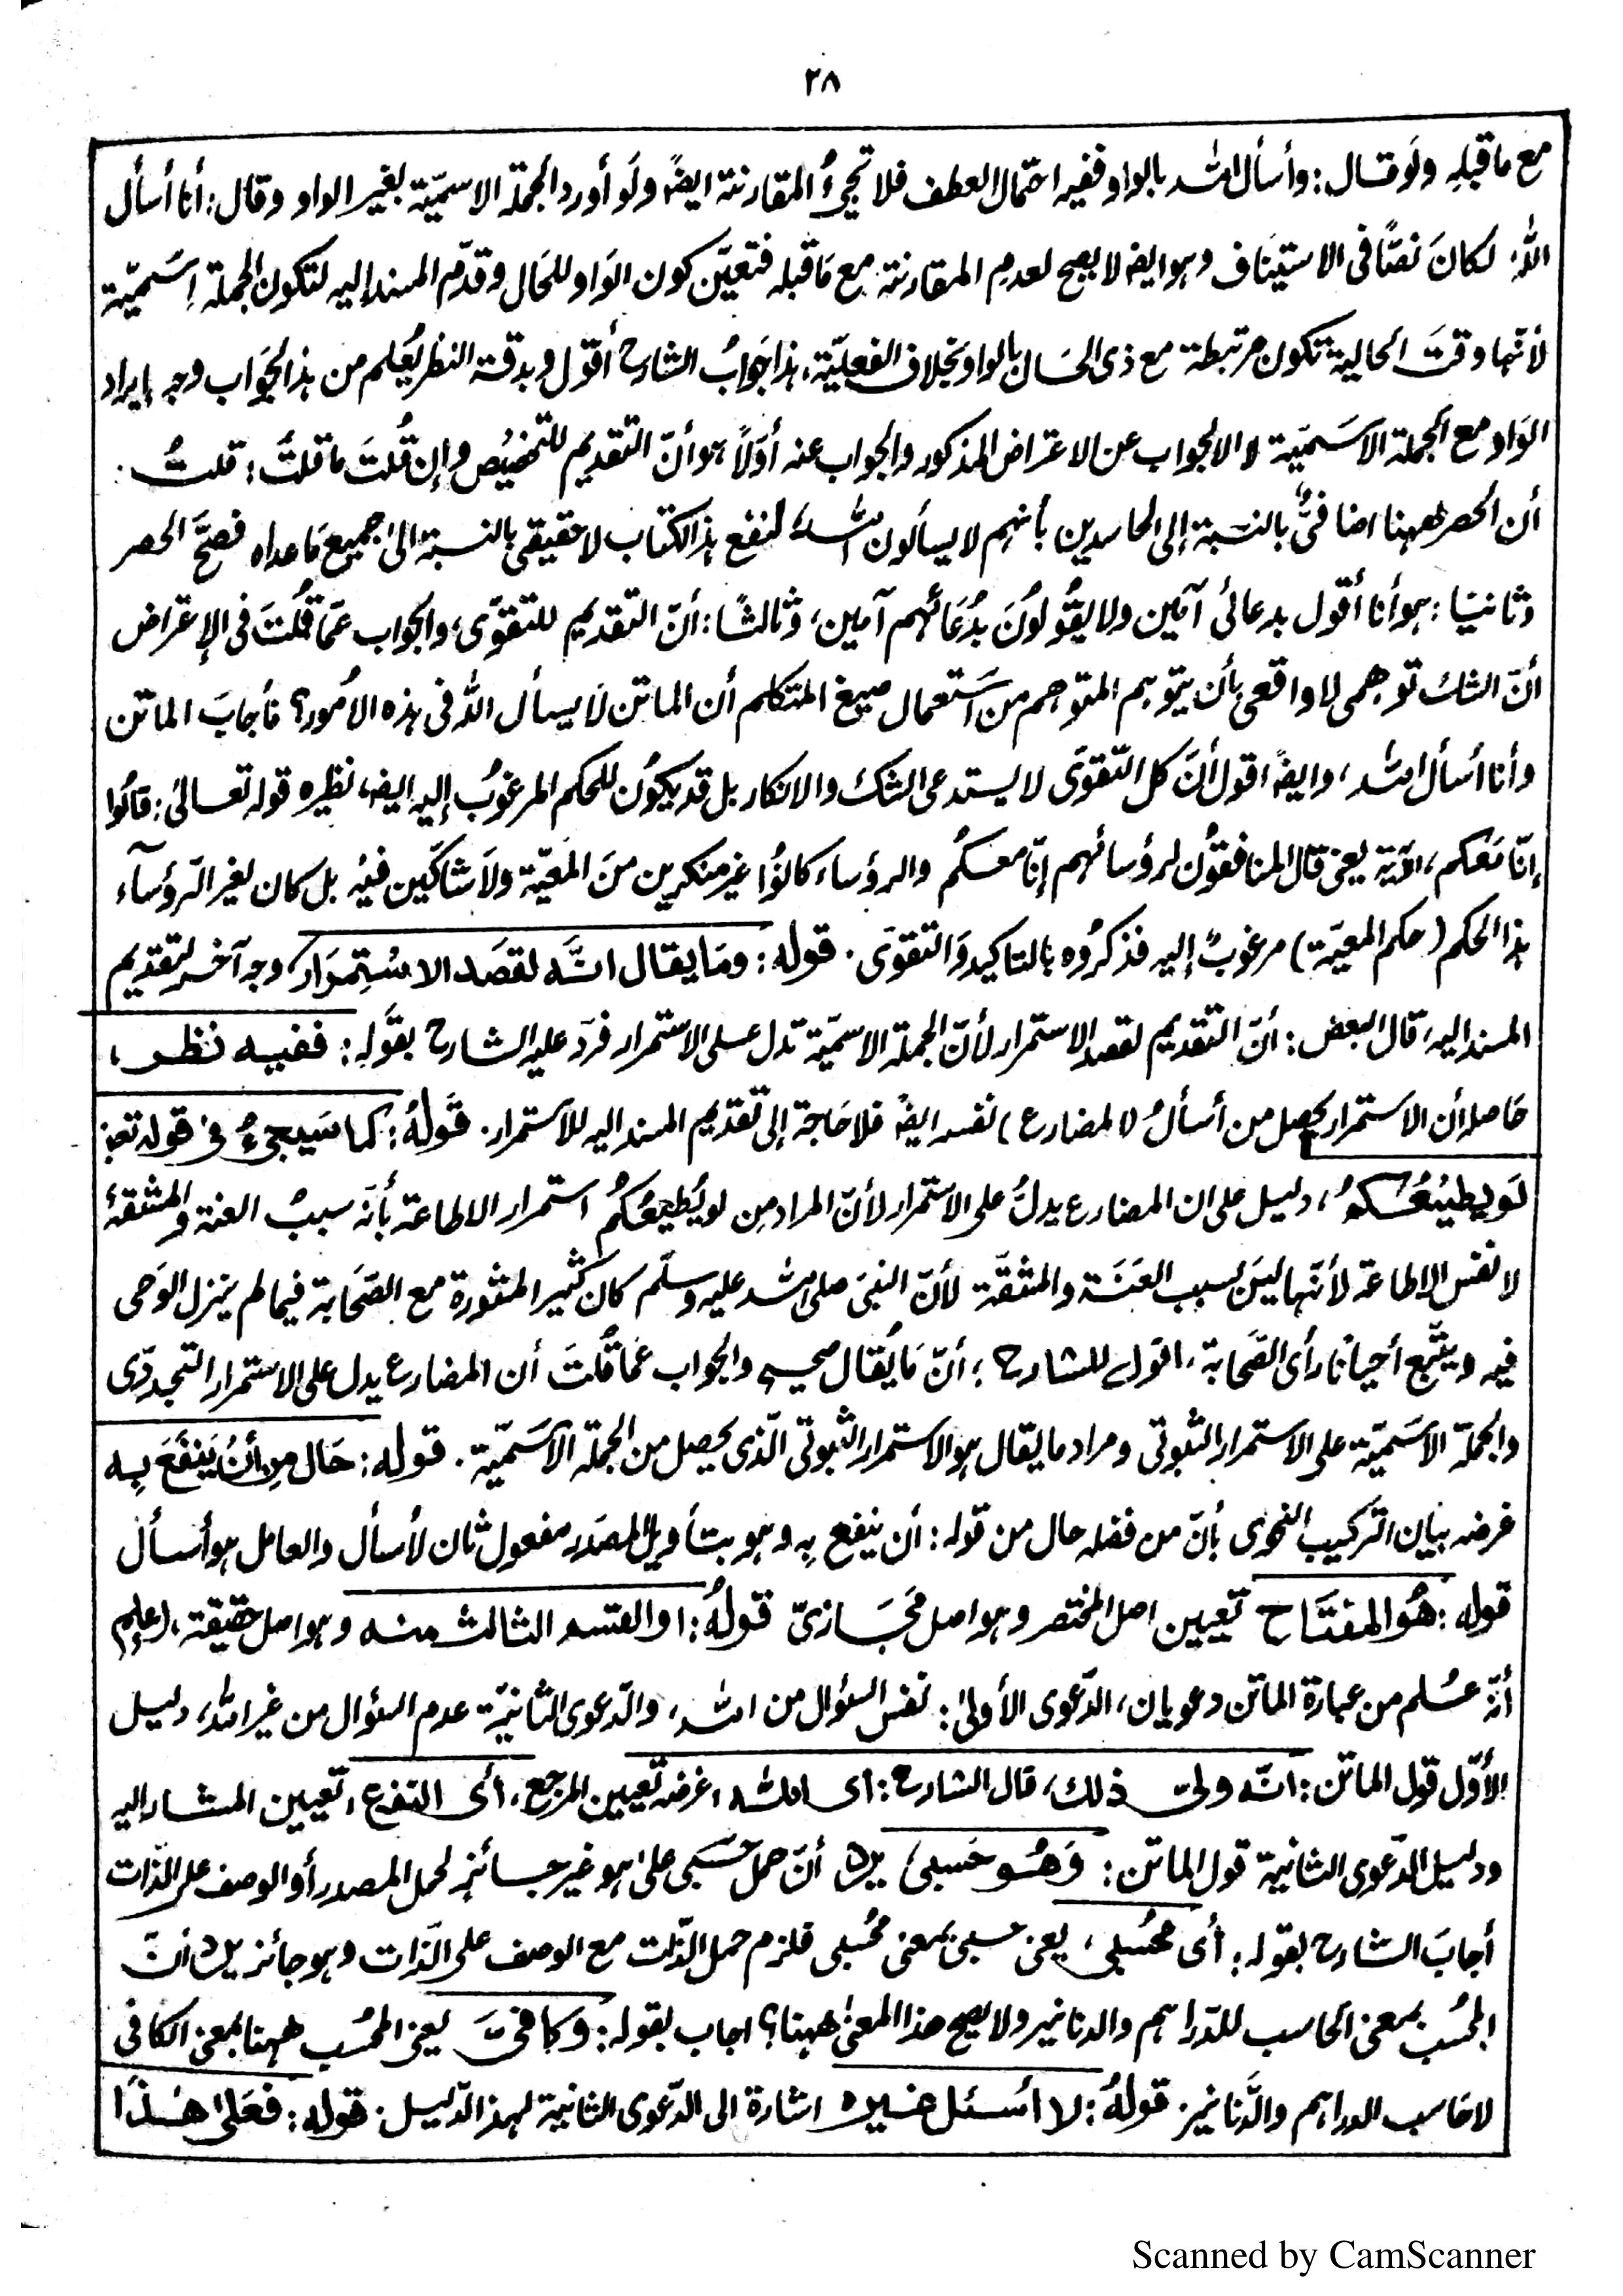 ٢٨
مع ما قبله ولو قال: وأسأل الله بالواو ففيه احتمال العطف فلا تجيءُ المقارنة ايضًا ولو أورد الجملة الاسميّة بغير الواو وقال: أنا أسأل
اللهَ لكانَ نصًّا في الاستيناف وهو ايضا لا يصح لعدم المقارنة مع مَا قبله فتعيّن كون الوَاو للحَال وقدّم المسند اليه لتكون الجملة اِسَميّة
لأنّها وقتَ الحالية تكون مرتبطة مع ذى الحَال بالواو بخلاف الفعليّة، هذا جَوابُ الشارح أقول وبدقة النظر يُعلم من هذا الجَواب وجه إيراد
الوَاو مع الجملة الاسَميّة لا الجواب عن الاعتراض المذكور والجواب عنه أوّلًا هو أنّ التقديم للتخصيُص وإن قُلتَ ما قلتُ: قلتُ
أن الحصر ههنا اضافيٌّ بالنسبة إلى الحاسدين بأنهم لا يسألون اللهَ لنفع هذا الكتاب لا حقيقي بالنسبة الى جميع مَا عداه فصَحّ الحصر
وثانيًا: هو أنا أقول بدعائى آمين ولا يقُولُونَ بدُعَائهم آمين، وثالثًا: أنّ التقديم للتقوّى، والجواب عمّا قُلتَ في الإعتراض
أنّ الشك توهمى لا واقعى بأن يتوهم المتوهم من اسَتعمال صيغ المتكلم أن الماتن لَا يسأل الله فى هذه الأمور؟ فأجابَ الماتن
وأنا أسأل الله، وايضًا اقول أنَّ كل التّقوى لا يستدعى الشك والانكار بل قد يكوُن للحكم المرغوبُ إليه ايضا، نظيره قوله تعالىٰ: قالُوا
إنّا مَعكم، الآية يعنى قال المنافقوُن لرؤسائهم إنّا معكُم والرؤساء كانوُا غير منكرين منَ المعيّة ولَا شاكّين فيْه بل كان لغير الرّؤسَآء
هذا الحكم (حكم المعيّة) مرغوبٌ إليه فذكرُوه بالتاكيد وَالتقوى. قوله: ومَا يقال انَّه لقصَد الاسْتِمرَار، وجه آخر لتقديم
المسند اليه، قال البعض: أنّ التقديم لقصد الاستمرار لأنّ الجملة الاسميّة تدل على الاستمرار فردّ عليه الشارح بقوله: ففيه نظر،
حَاصله أن الاستمرار يحصل من أسألُ (المضارع) نفسه ايضًا فلا حَاجة إلى تقديم المسند اليه للاستمرار. قَولهُ: كما سَيجىءُ فى قوله تعالىٰ
لَو يطيْعُكم، دليل على ان المضارع يدلُّ على الاستمرار لأنّ المراد مِن لو يُطيعُكُم استمرار الاطاعة بأنّه سببُ العنة والمشقة
لا نفس الإطاعة لأنّها ليسَ لسبب العَنَة والمشقّة لأنّ النبىَ صلى الله عليه وسلّم كان كثير المشورة مع الصَّحَابة فيما لم ينزل الوَحى
فيه ويتّبع أحيانًا رأى الصَّحَابة، اقول للشارح: أنّ مَا يُقال صحيح والجواب عَمّا قُلتَ أن المضارع يدل على الاستمرار التجددّى
والجُملّة الاسَميّة على الاستمرار الثبوتى ومراد ما يقال هو الاستمرار الثبوتى الّذى يحصل من الجملة الاسَميّة. قوله: حَال مِن أنْ يَنفَعَ بِه
غرضه بيان التركيب النحوى بأنّ من فضله حال من قوله: أن ينفع بِه وهو بتأويل المصدر مفعول ثان لأسأل والعامل هو أسأل
قوله: هُوَ المفتَاح تعيين اصل المختصر وهو اصل مجَازىّ قولهُ: او القسم الثالث منه وهو اصل حقيقة، إعلم
أنّه عُلم من عبارة الماتن دعويان، الدّعوى الأولىٰ: نفس السؤال من الله، والدّعوى الثانيّة عدم السؤال من غير الله، دليل
الأوّل قول الماتن: انّه ولىّ ذلك، قال الشارح: اى الله، غرضه تعيين المرجع، أى النفع، تعيين المشار إليه
ودليل الدّعوى الثانية قول الماتن: وَهُو حَسبىْ، يرد أنّ حمل حَسْبى علىٰ هو غير جائز لحمل المصدر أو الوصف على الذّات
أجابَ الشارح بقوله: أى محْسبى، يعنى حسبى بمعنى مُحْسبى فلزم حمل الذّات مع الوصف على الذّات وهو جائز يرد أنّ
المحْسب بمعنى الحَاسب للدّراهم والدنانير ولا يصح هذا المعنىٰ ههنا؟ اجاب بقوله: وَكافىَّ يعنى المحْسب ههنا بمعنى الكافى
لا حَاسب الدراهم والدَّنانير. قولهُ: لا اسئل غيره اشارة الى الدّعوى الثانية لهذا الدّليل. قوله: فَعَلىٰ هٰذا
Scanned by CamScanner